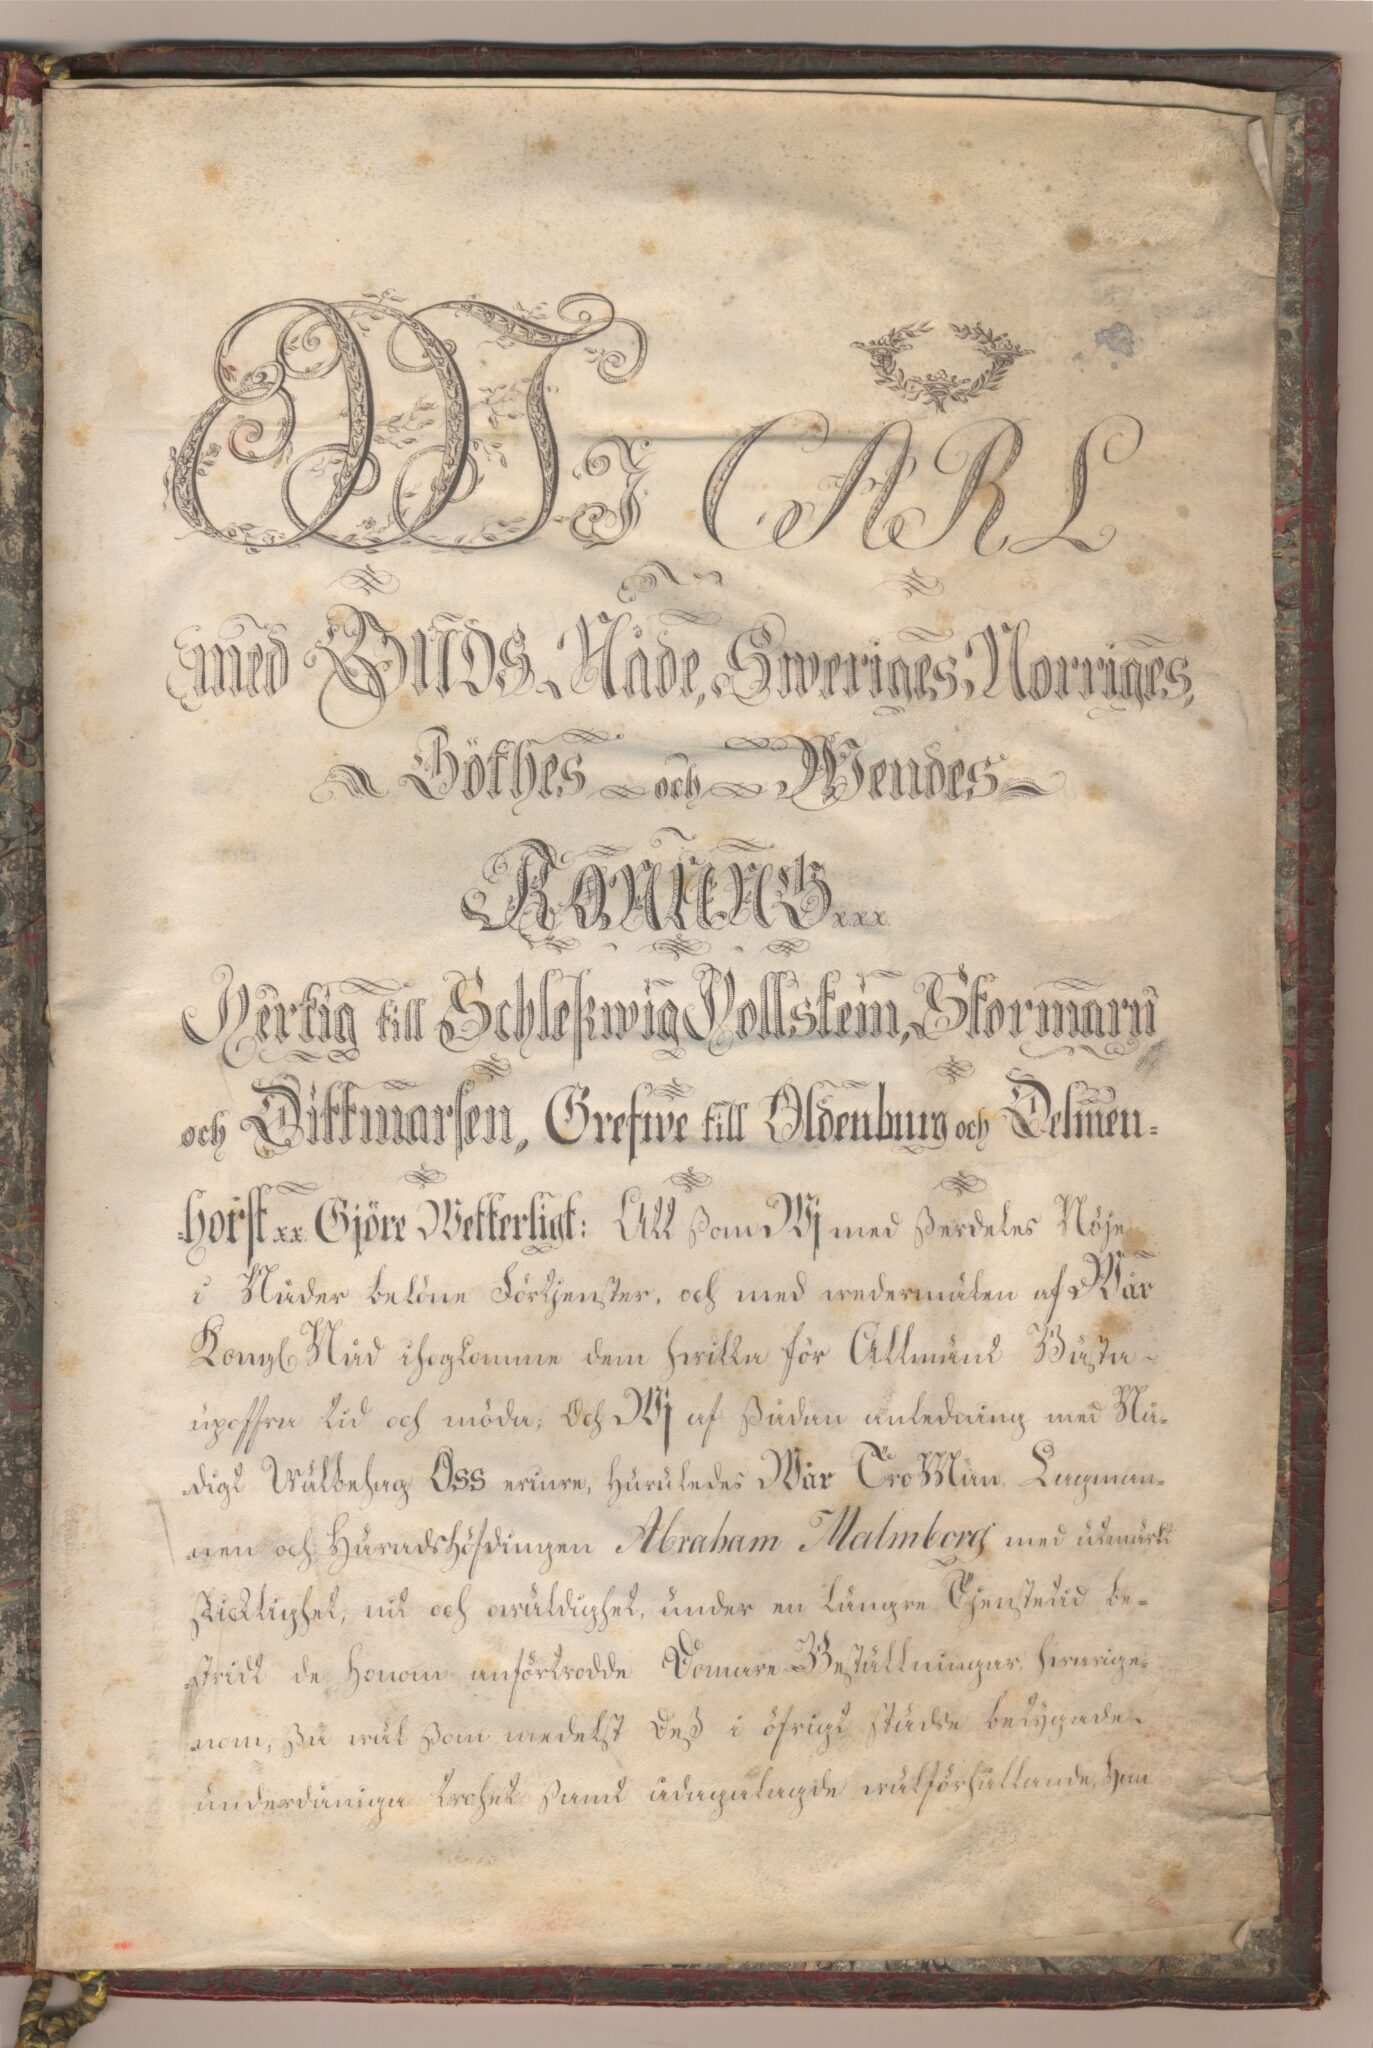 Wj CARL
med Guds Nåde, Sweriges, Norriges,
Göthes och Wendes
Konung xxx
Hertig till Schleßwig Hollstein, Stormarn
och Dittmarsen, Grefwe till Oldenburg och Delmen-
horst xx Gjöre Wetterligt: Att Som Wj med Serdeles Nöje
i Nåder belöne Förtjenster, och med wedermälen af Wår
Kongl Nåd ihogkomme dem hwilka för Allmänt Bästa
upoffra tid och möda; Och Wj af Sådan anledning med Nå-
digt Wälbehag Oss erinre, huruledes Wår TroMan Lagman-
nen och Häradshöfdingen Abraham Malmborg med utmärkt
Skicklighet, nit och oväldighet, under en längre Tjenstetid be-
stridt de Honom anförtrodde Domare Beställningar, hwarige-
nom, Så wäl Som medelst Deß i öfrigt städse betygade
underdåniga trohet Samt ådagalagde wälförhållande, Han